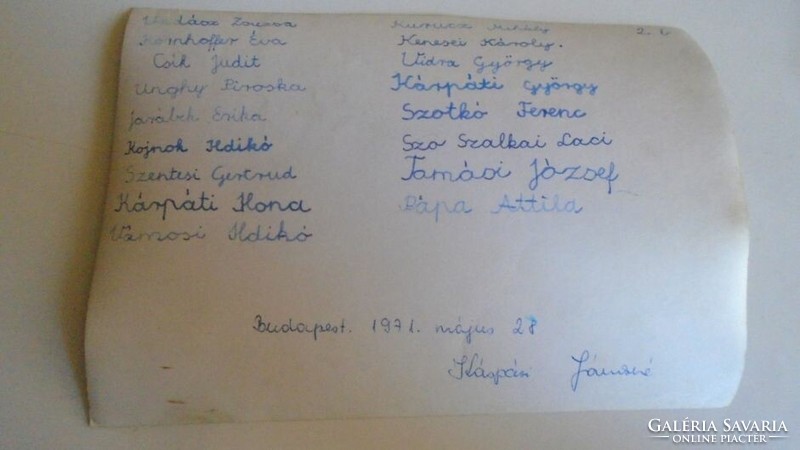 Vadász Zsuzsa
Kornhoffer Éva
Csík Judit
Unghy Piroska
Jarábek Erika
Kojnok Ildikó
Szentesi Gertrud
Kárpáti Ilona
Vámosi Ildikó
Mihály
Kenesei Károly.
Vidra György
Kárpáti György
Szotkó Ferenc
Szo Szalkai Laci
Tamási József
Pápa Attila
2.
Budapest. 1971. május 28
Jánosné
GALÉRIA SAVARIA
ONLINE PIACTÉR